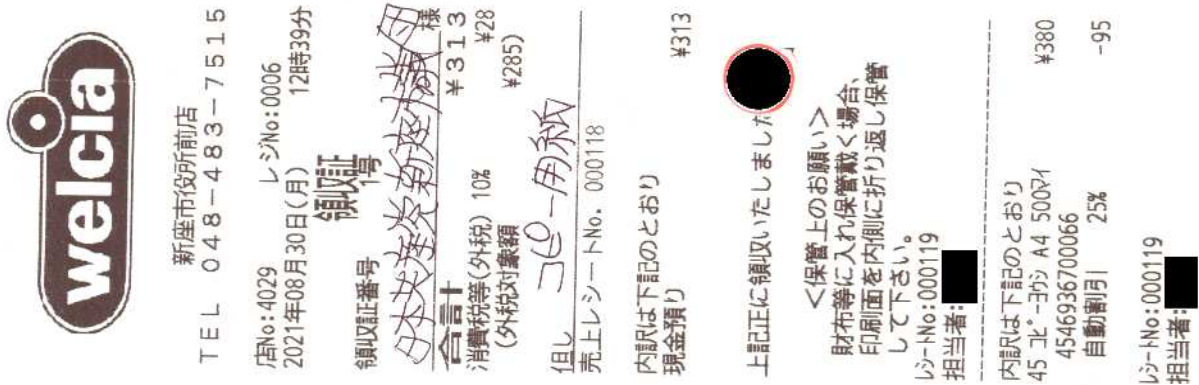 welcia
新座市役所前店
TEL 048-483-7515
店No:4029 レジNo:0006
2021年08月30日(月) 12時39分
領収証
領収証番号 1号
様
合計 ¥313
消費税等(外税) 10% ¥28
(外税対象額 ¥285)
但し コピー用紙
売上レシートNo. 000118
内訳は下記のとおり
現金預り ¥313
上記正に領収いたしました
<保管上のお願い>
財布等に入れ保管戴く場合、
印刷面を内側に折り返し保管
して下さい。
レシートNo:000119
担当者:
内訳は下記のとおり
45 コピーヨウシ A4 500マイ ¥380
4546936700066
自動割引 25% -95
レシートNo:000119
担当者: